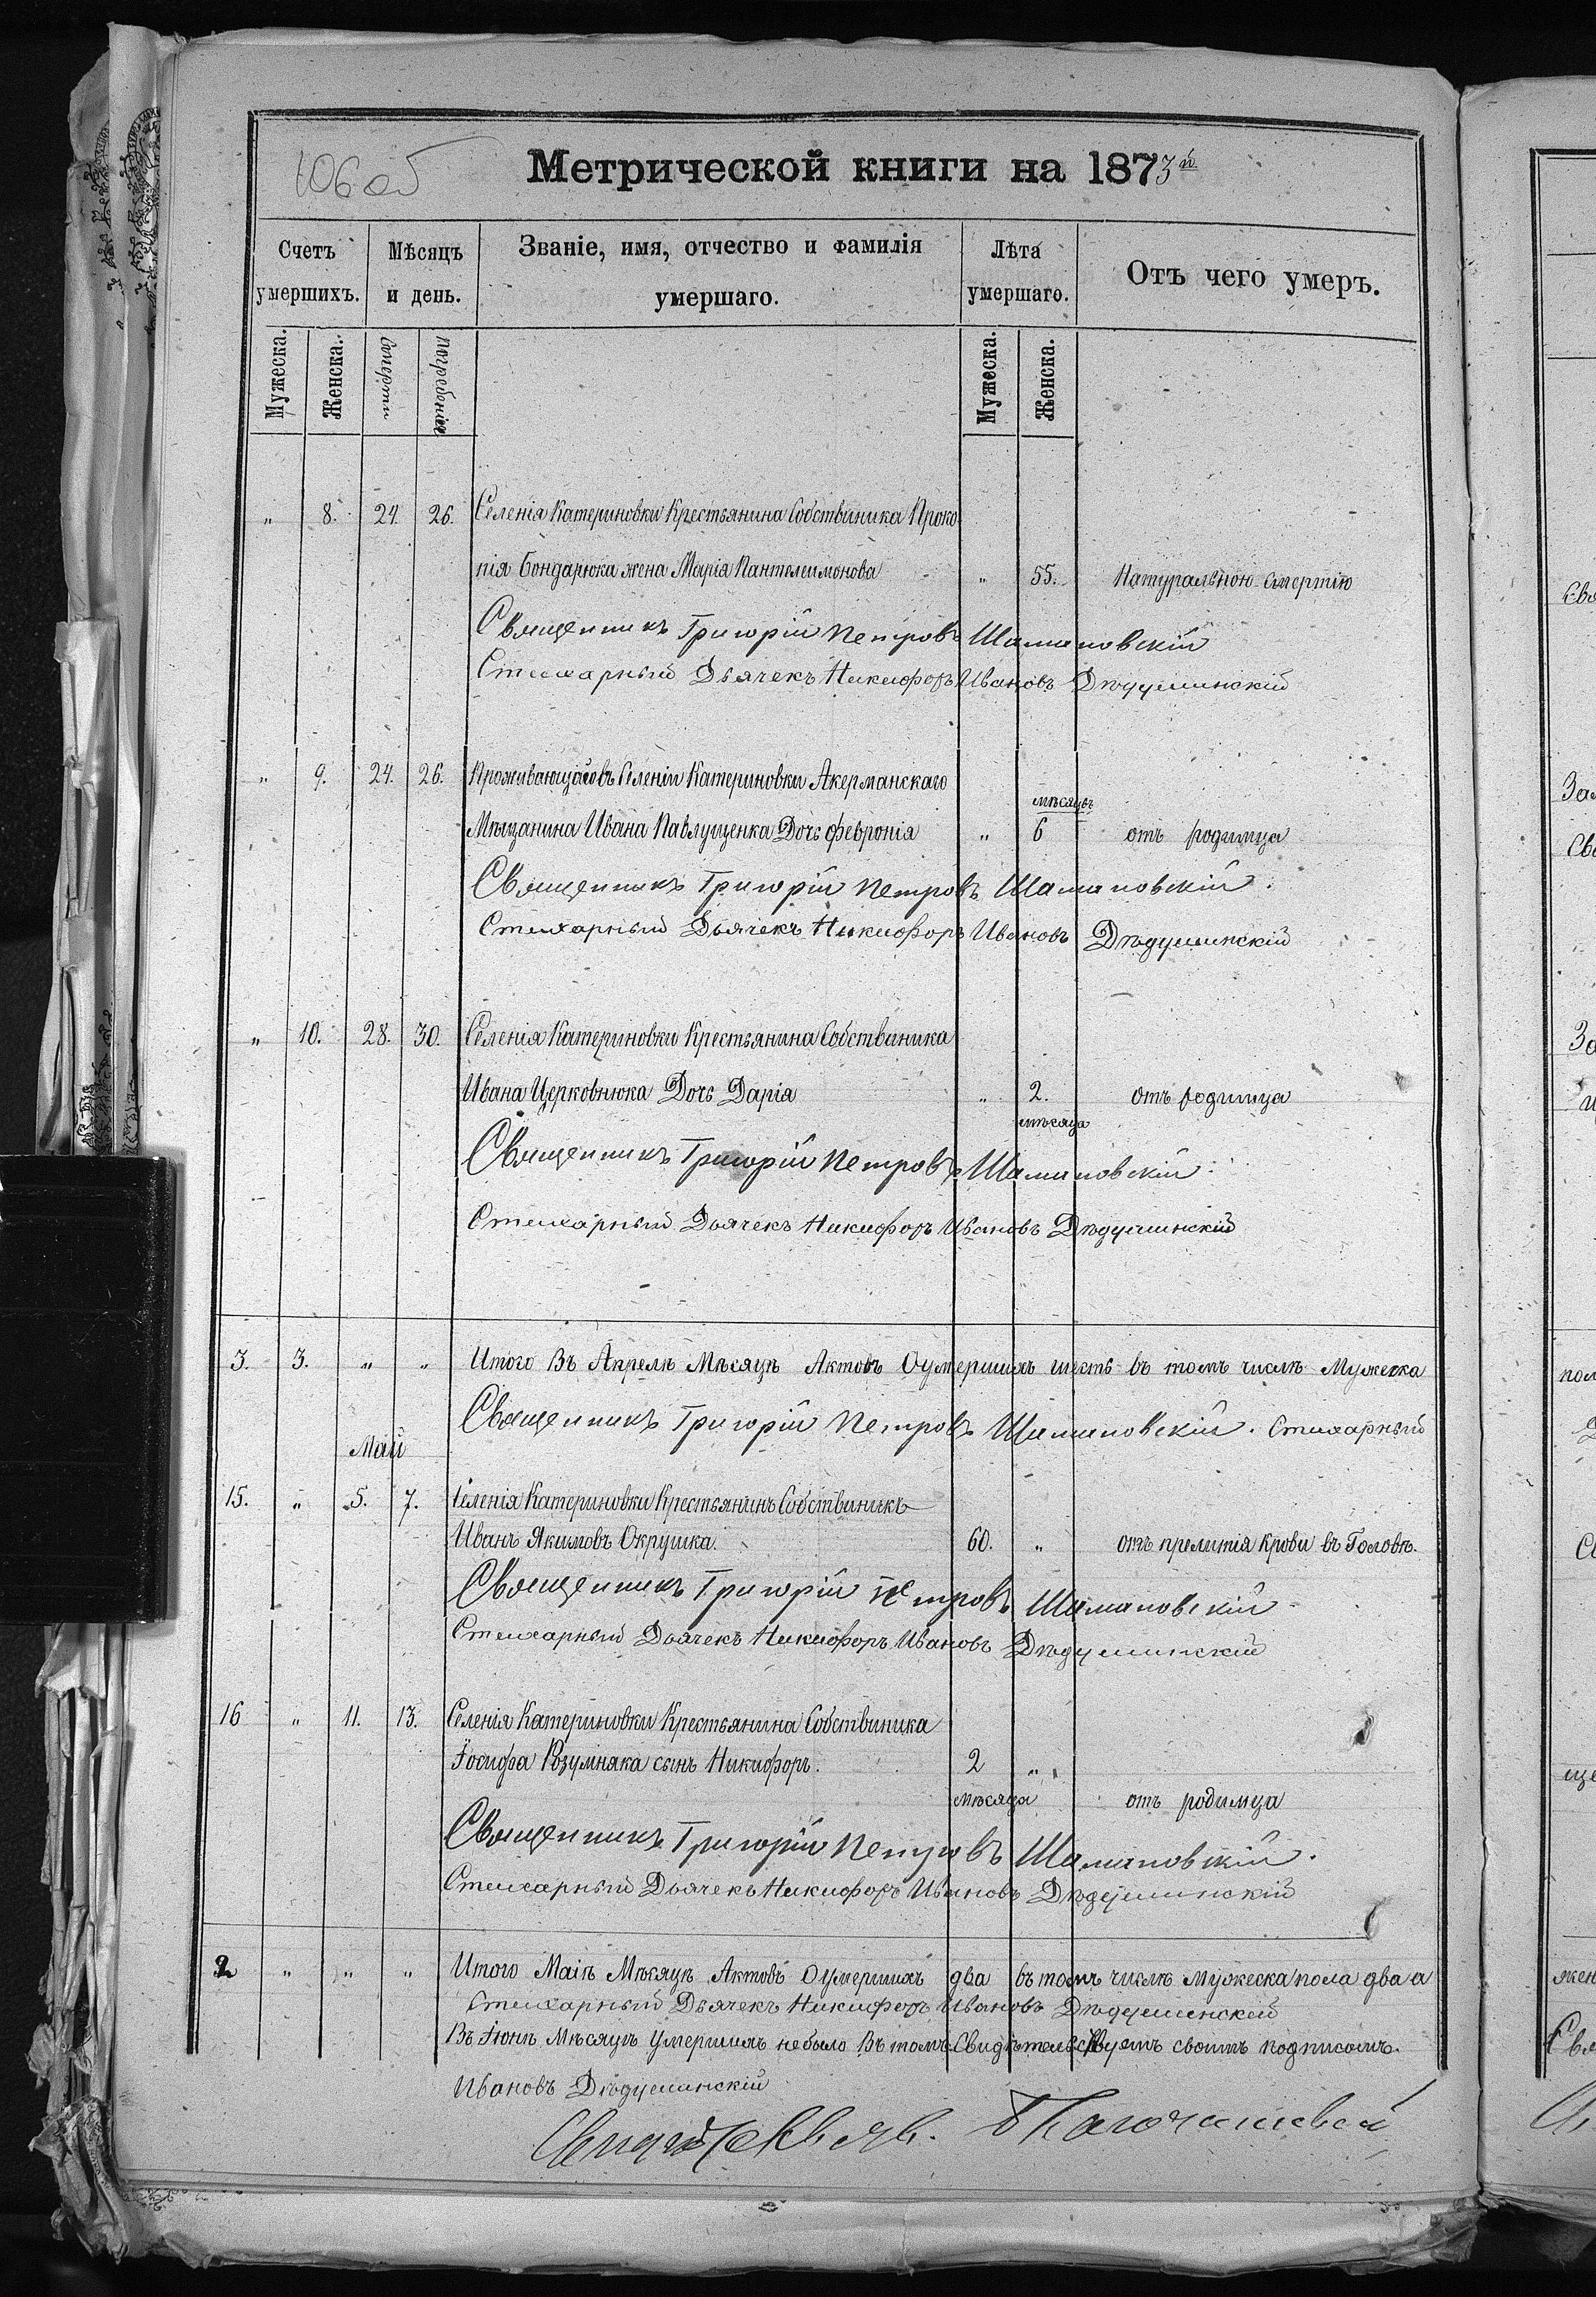 106 об
Метрической книги на 1873й
Счетъ умершихъ.
Мѣсяцъ и день.
Званіе, имя, отчество и фамилія умершаго.
Лѣта умершаго.
Отъ чего умеръ.
Мужеска. Женска. Смерти Погребенія Мужеска. Женска.
„ 8. 24. 26. Селенія Катериновки Крестьянина Собствиника Проко
пія Бондарюка жена Марія Пантелеимонова „ 55. Натуральною смертію
Священникъ Григорій Петровъ Шаманов­скій
Стихарный Дьячекъ Никифоръ Ивановъ Дѣдушинскій
„ 9. 24. 26. Проживающаго въ Селеніи Катериновки Акерманскаго
мѣсяцъ
Мѣщанина Ивана Павлущенка Дочь Февронія „ 6 отъ родимца
Священникъ Григорій Петровъ Шамановскій.
Стихарный Дьячекъ Никифоръ Ивановъ Дѣдушинскій
„ 10. 28. 30. Селенія Катериновки Крестьянина Собствиника
Ивана Церковнюка Дочь Дарія „ 2. отъ родимца
мѣсяца
Священникъ Григорій Петровъ Шамановскій.
Стихарный Дьячекъ Никифоръ Ивановъ Дѣдушинскій
3. 3. „ „ Итого Въ Апрелѣ Мѣсяцѣ Актовъ Оумершихъ шесть въ томъ числѣ Мужеска
Священникъ Григорій Петровъ Шамановскій. Стихарный
Май
15. „ 5. 7. Селенія Катериновки Крестьянинъ Собствиникъ
Иванъ Якимовъ Окрушка. 60. „ отъ прелитія Крови въ Головѣ.
Священникъ Григорій Петровъ Шамановскій
Стихарный Дьячекъ Никифоръ Ивановъ Дѣдушинскій
16 „ 11. 13. Селенія Катериновки Крестьянина Собствиника
Іосифа Розумняка сынъ Никифоръ. 2 „
мѣсяца отъ родимца
Священникъ Григорій Петровъ Шамановскій.
Стихарный Дьячекъ Никифоръ Ивановъ Дѣдушинскій
2 „ „ „ Итого Маіѣ Мѣсяцѣ Актовъ Оумершихъ два въ томъ числѣ мужеска пола два а
Стихарный Дьячекъ Никифоръ Ивановъ Дѣдушинскій
Въ Іюнѣ Мѣсяцѣ Умершихъ небыло Въ томъ Свидѣтельствуемъ своимъ подписомъ.
Ивановъ Дѣдушинскій